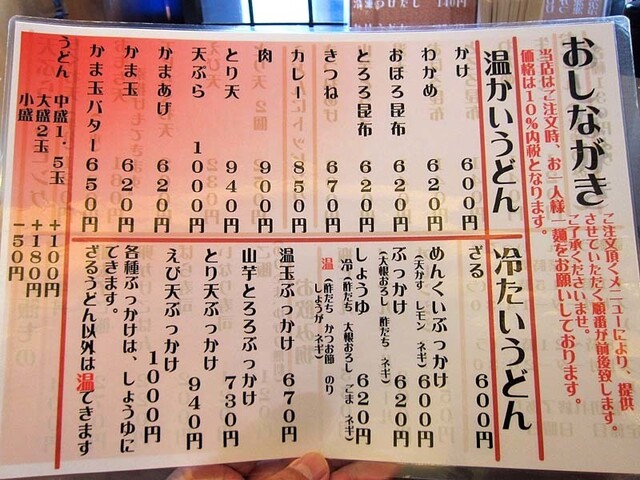 おしながき
ご注文頂くメニューにより、提供
させていただく順番が前後致します。
ご了承くださいませ。
当店はご注文時、お一人様一麺をお願いしております。
価格は10%内税となります。
温かいうどん
かけ 600円
わかめ 620円
おぼろ昆布 620円
とろろ昆布 620円
きつね 670円
カレー 850円
肉 900円
とり天 940円
天ぷら 1000円
かまあげ 620円
かま玉 620円
かま玉バター 650円
うどん 中盛1,5玉 +100円
大盛2玉 +180円
小盛 -50円
冷たいうどん
ざる 600円
めんくいぶっかけ 600円
(天かす レモン ネギ)
ぶっかけ 620円
(大根おろし 酢だち ネギ)
しょうゆ 620円
冷(酢だち 大根おろし ごま ネギ)
温(酢だち かつお節 のり
しょうが ネギ)
温玉ぶっかけ 670円
山芋とろろぶっかけ 730円
とり天ぶっかけ 940円
えび天ぶっかけ 1000円
各種ぶっかけは、しょうゆに
できます。
ざるうどん以外は温できます